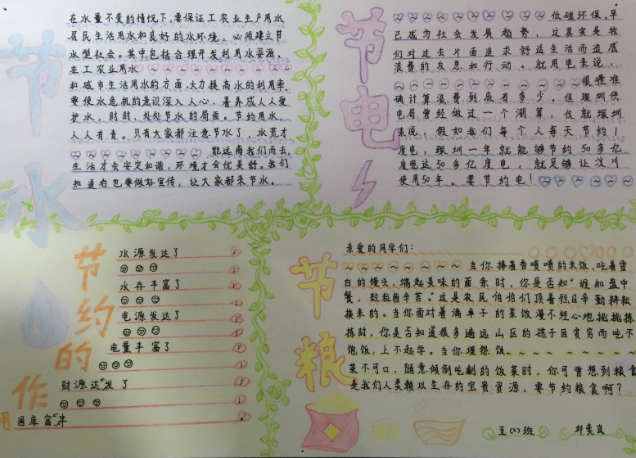 节水
在水量不变的情况下,要保证工农业生产用水
居民生活用水和良好的水环境,必须建立节
水型社会。其中包含合理开发利用水资源,
在工农业用水
和城市生活用水的方面,大力提高水的利用率,
要使水危机的意识深入人心,养成人人爱
护水,时时,处处节水的局面。节约用水,
人人有责。只有大家都注意节水了,水荒才
能远离我们而去,
生活才会安定和谐,环境才会优美舒。我们
知道有包要做好宣传,让大家都来节水。
节电
低碳环保,早
已成为社会发展趋势,这其实是我
们对过去片面追求舒适生活而造成
浪费的反思和行动。就用电来说,
很难准
确计算浪费到底有多少。但深圳供
电局曾经做过一个测算,仅就深圳
来说,假如我们每个人每天节约1
度电,深圳一年就能够节约50多亿
度电这50多亿度电,就足够让汶川
使用50年。要节约电!
节约的作用
水源发达了
水存丰富了
电源发达了
电量丰富了
财源达发了
国库富丰
节粮
亲爱的同学们:
当你,捧着香喷喷的米饭,吃着雪
白的馒头,端起美味的面条时,你是否知"谁知盘中
餐,粒粒皆辛苦。"这是农民伯伯们顶着烈日辛勤耕耘
换来的。当你面对着满桌子的菜饭漫不经心地挑挑拣
拣时,你是否知道很多遍远山区的孩子因贫穷而吃不
饱饭,上不起学。当你埋怨饭
菜不可口,随意倾倒吃剩的饭菜时,你可曾想到粮食
是我们人类赖以生存的宝贵资源,要节约粮食啊?
五(1)班